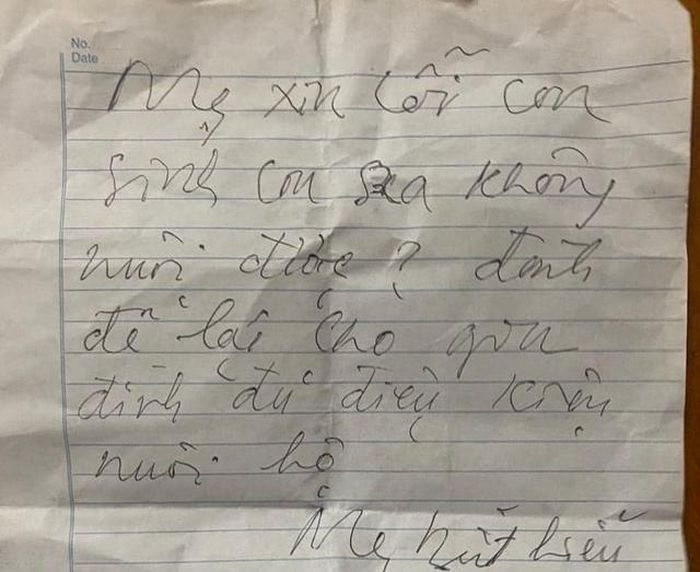 No.
Date
Mẹ xin lỗi con
Sinh con ra không
nuôi được? đành
để lại cho gia
đình đủ điều kiện
nuôi hộ
Mẹ bất hiếu